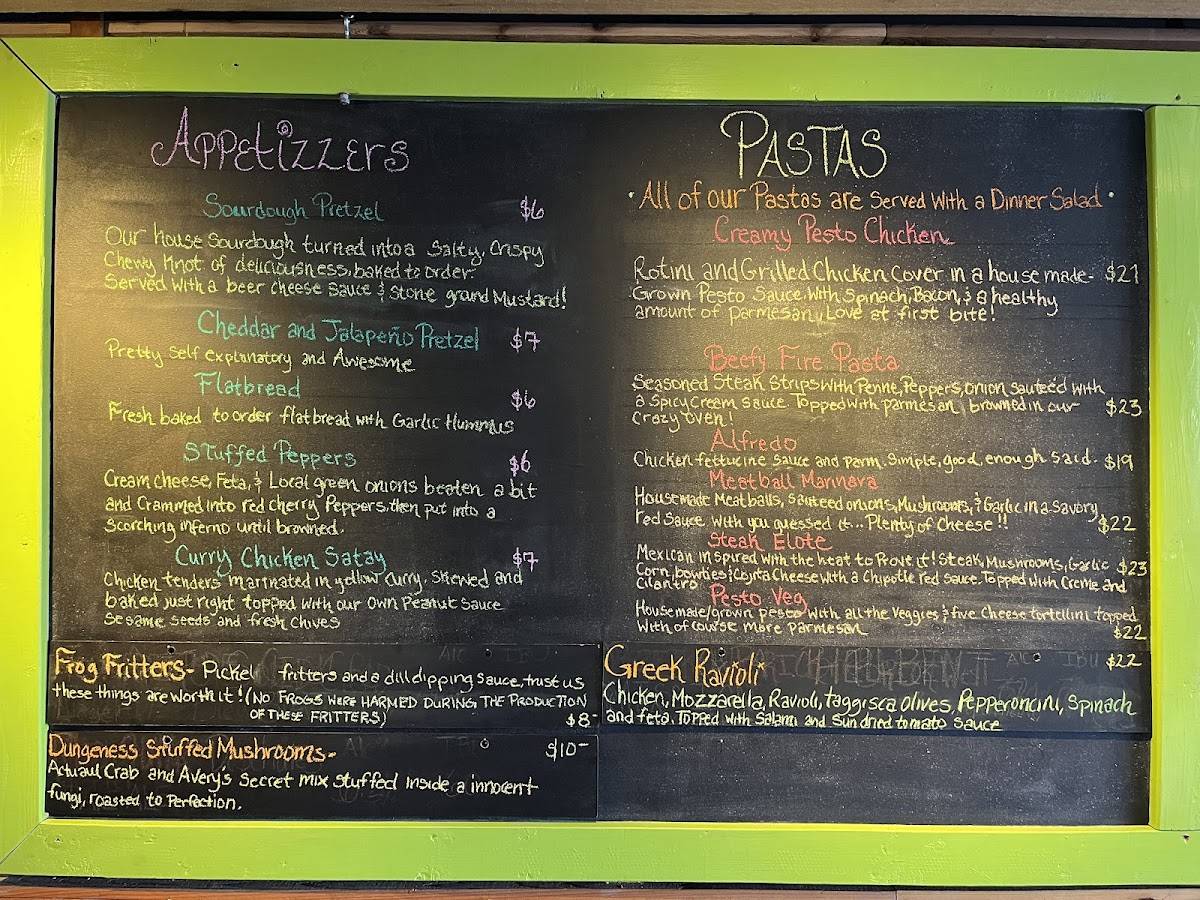 Appetizzers
Sourdough Pretzel $6
Our house sourdough turned into a Salty, Crispy
Chewy Knot of deliciousness, baked to order.
Served with a beer cheese sauce & stone ground Mustard!
Cheddar and Jalapeño Pretzel $7
Pretty self explanatory and Awesome
Flatbread $6
Fresh baked to order flatbread with Garlic Hummus
Stuffed Peppers $6
Cream cheese, Feta, & Local green onions beaten a bit
and Crammed into red cherry Peppers, then put into a
Scorching inferno until browned.
Curry Chicken Satay $7
Chicken tenders marinated in yellow curry, skewed and
baked just right topped with our own Peanut sauce
sesame seeds and fresh chives
Frog Fritters- Pickel fritters and a dill dipping sauce, trust us
these things are worth it! (No FROGS WERE HARMED DURING THE PRODUCTION
OF THESE FRITTERS) $8-
Dungeness Stuffed Mushrooms- $10-
Actuaul Crab and Avery's secret mix stuffed inside a innocent
fungi, roasted to Perfection.
PASTAS
• All of our Pastas are Served With a Dinner Salad •
Creamy Pesto Chicken
Rotini and Grilled Chicken Cover in a house made- $21
Grown Pesto Sauce with Spinach, Bacon, & a healthy
amount of parmesan, Love at first bite!
Beefy Fire Pasta
Seasoned Steak Strips with Penne, Peppers, onion sauteed with
a Spicy Cream Sauce Topped with parmesan, browned in our $23
crazy oven!
Alfredo
Chicken fettucine sauce and parm. Simple, good, enough said. $19
Meatball Marinara
Housemade Meatballs, Sauteed onions, Mushrooms, & Garlic in a Savory
red Sauce, with you guessed it... Plenty of Cheese!! $22
Steak Elote
Mexican inspired with the heat to Prove it! Steak, Mushrooms, Garlic $23
Corn, bowties & Cojita Cheese with a Chipotle red sauce. Topped with Creme and
Cilantro
Pesto Veg
Housemade/grown pesto with all the Veggies & five Cheese tortellini topped
With of course more Parmesan $22
Greek Ravioli $22
Chicken, Mozzarella, Ravioli, taggisca olives, Pepperoncini, Spinach
and feta. Topped with Salami and Sundried tomato Sauce